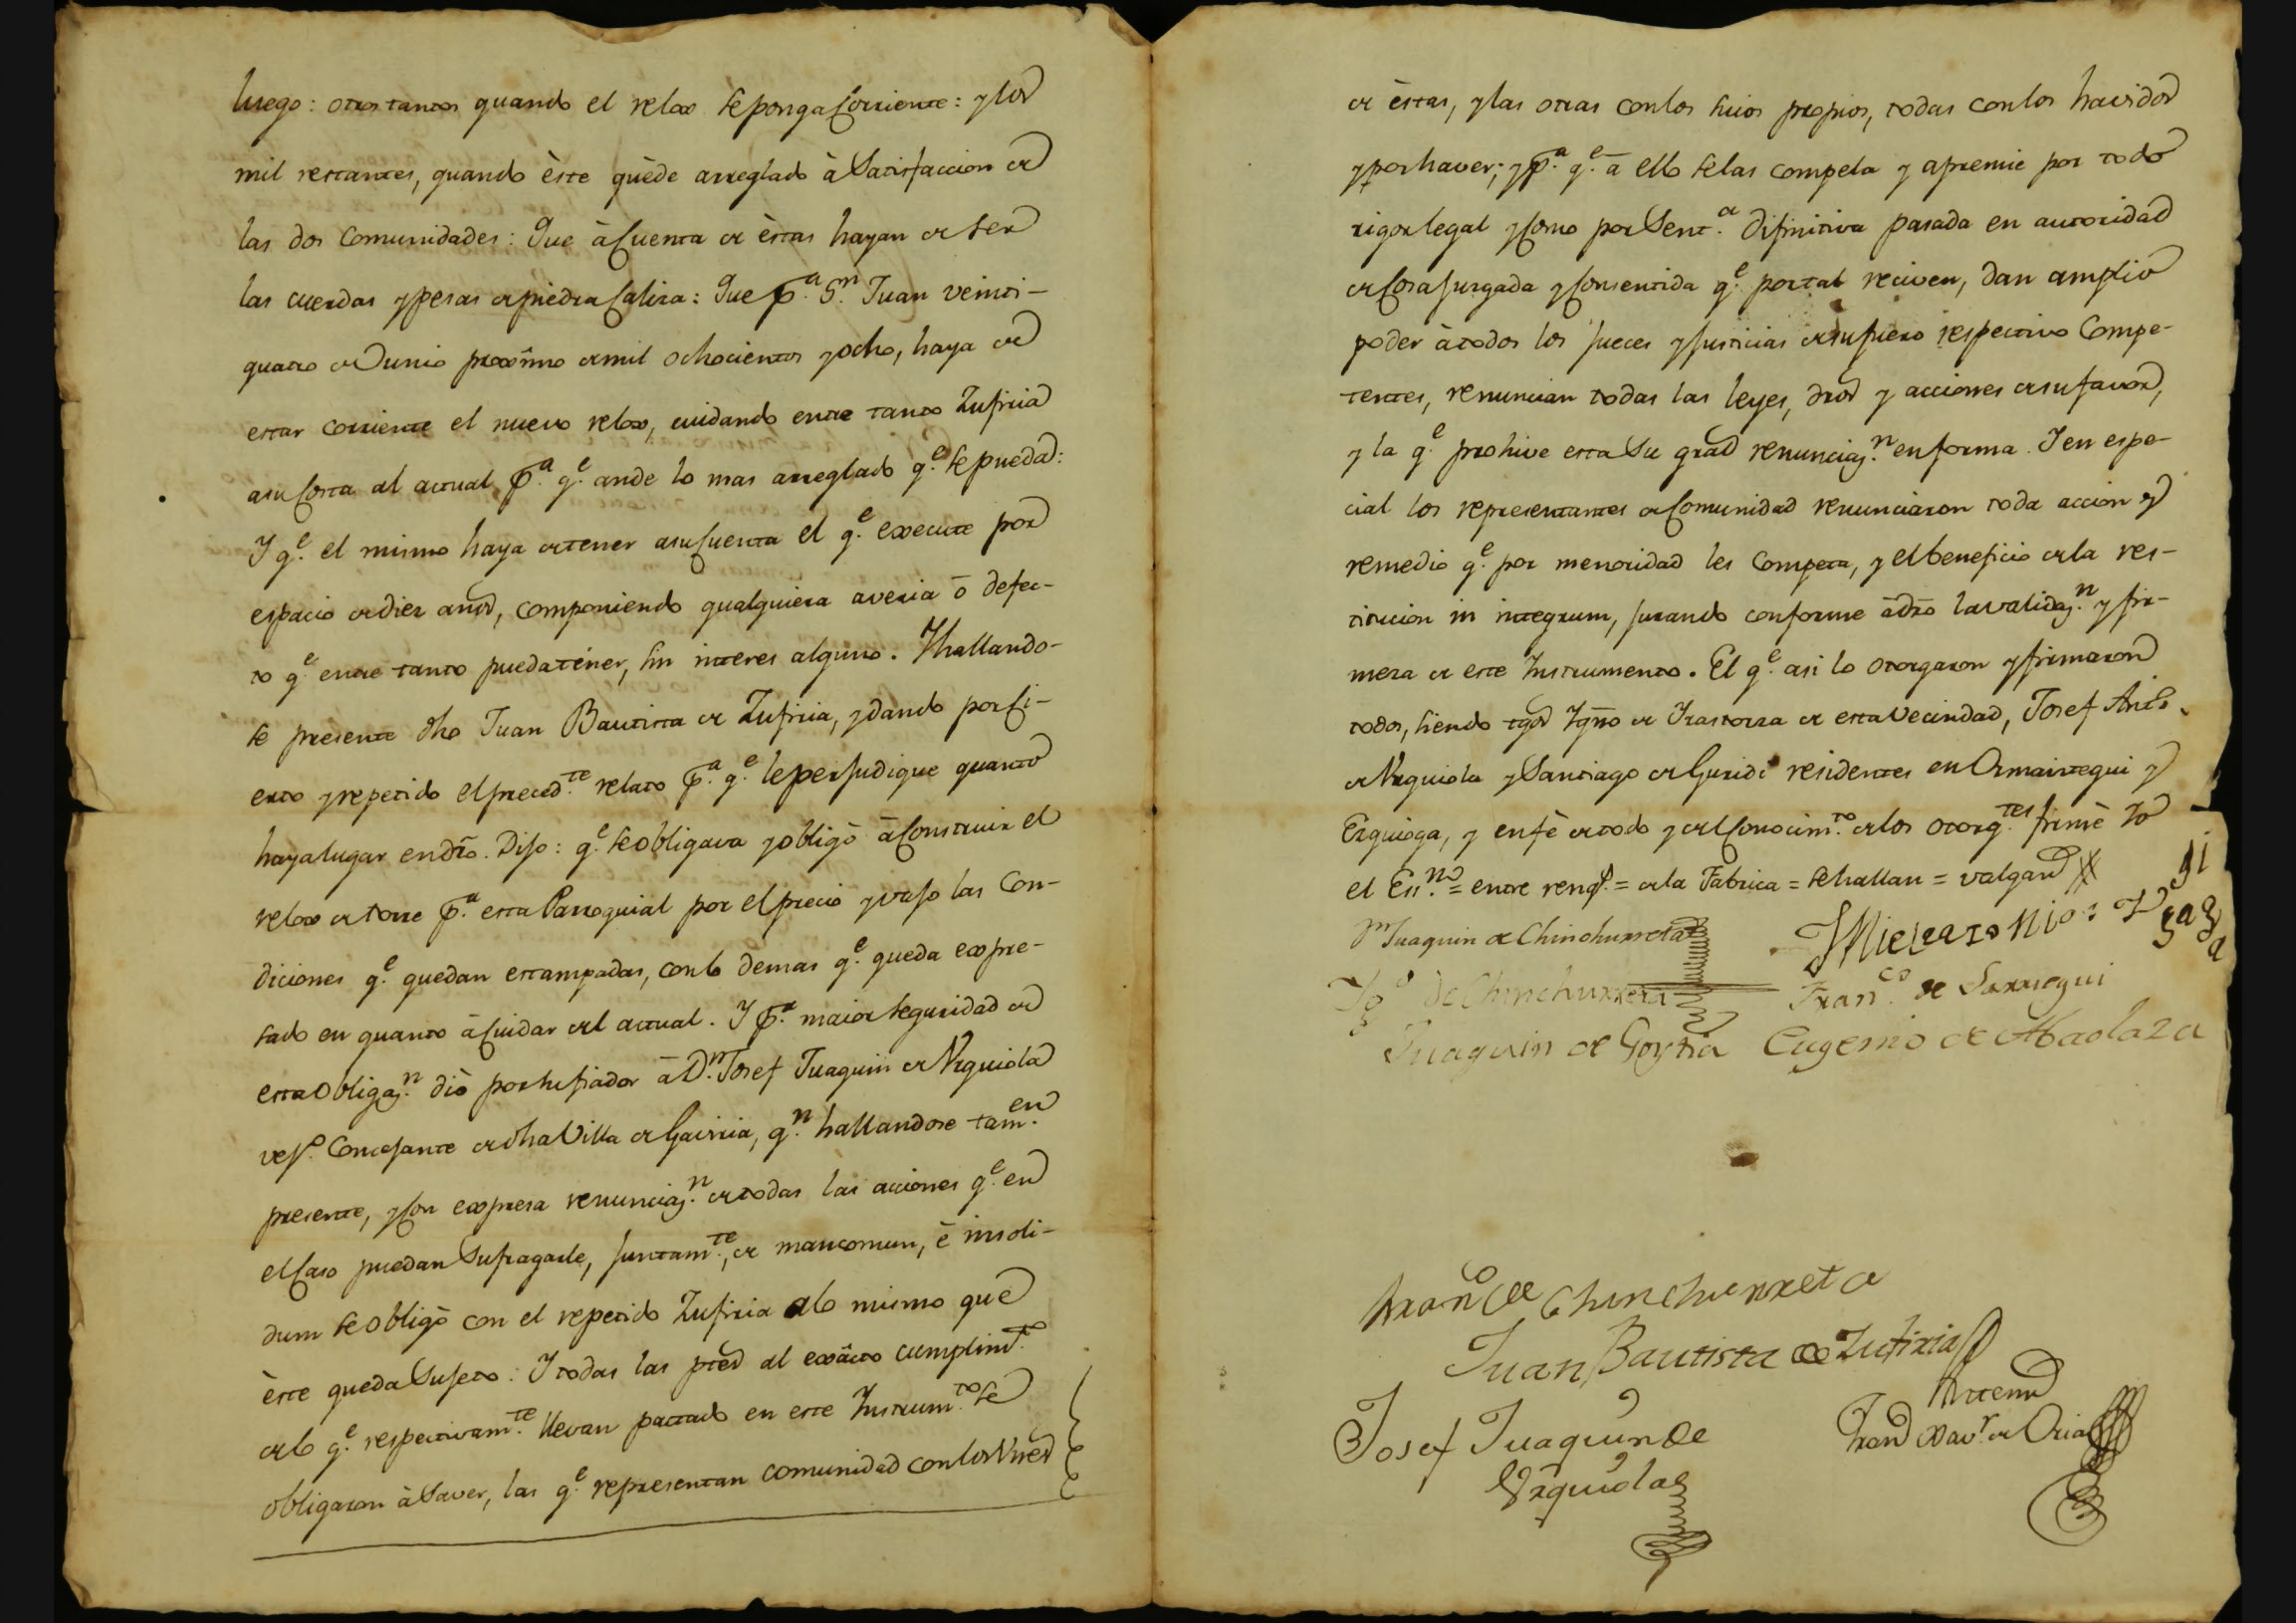 luego: otros tantos quando el relox se ponga Corriente: y los
mil restantes, quando èste quède arreglado à Satisfaccion de
las dos Comunidades: Que à Cuenta de èstas hayan de ser
las cuerdas y pesas de piedra Caliza: Que p.ª S.n Juan veinti-
quatro de Junio proximo de mil ochocientos y ocho, haya de
estar corriente el nuevo relox, cuidando entre tanto Zufiria
asu Costa al actual p.ª q.e ande lo mas arreglado q.e se pueda:
Y q.e el mismo haya de tener asu Cuenta el q.e execute por
espacio de diez años, componiendo qualquiera averia ō defec-
to q.e entre tanto pueda tener, sin interes alguno. Y hallando-
se presente dho Juan Bautista de Zufiria, y dando por Ci-
erto y repetido el preced.te relato p.ª q.e le perjudique quanto
haya lugar en dro. Dijo: q.e se obligava y obligò à Construir el
relox de torre p.ª esta Parroquial por el precio y vajo las Con-
diciones q.e quedan estampadas, con lo demas q.e queda expre-
sado en quanto à Cuidar del actual. Y p.ª maior seguridad de
esta obligaz.n diò por su fiador à D.n Josef Juaquin de Urquiola
vez.o Concejante de dha Villa de Gaviria, q.n hallandose tam.en
presente, y Con expresa renunciaz.n de todas las acciones q.e en
el Caso puedan Sufragarle, juntam.te, de mancomun, è insoli-
dum se obligò con el repetido Zufiria alo mismo que
èste queda Sujeto: Y todas las ptes al exâcto cumplim.to
de lo q.e respectivam.te llevan pactado en este Instrum.to se
obligaron à Saver, las q.e representan comunidad con los Vnes
de èstas, y las otras con los suios propios, todas con los havidos
y por haver; y p.ª q.e a ello se las compela y apremie por todo
rigor legal y Como por Sent.a difinitiva pasada en autoridad
de Cosa juzgada y Consentida q.e por tal reciven, dan amplio
poder à todos los jueces y justicias de su fuero respectivo Compe-
tentes, renuncian todas las leyes, dros y acciones de su favor,
y la q.e prohive esta Su gral renunciaz.n en forma. Y en espe-
cial los representantes de Comunidad renunciaron toda accion y
remedio q.e por menoridad les Competa, y el beneficio de la res-
titucion in integrum, jurando conforme à dro la validaz.n y fir-
meza de este Instrumento. El q.e asi lo otorgaron y firmaron
todos, siendo tgos Ygno de Yrastorza de esta Vecindad, Josef Anto.
de Urquiola y Santiago de Guridi residentes en Ormaiztegui y
Ezquioga, y en fè de todo y del Conocim.to de los otorg.tes firmè Yo
el Es.no = entre rengs. = de la Fabrica = se hallan = valgan
D.n Juaquin de Chinchurreta
Fran.co de Sarriegui
de Chinchurreta
Juaquin de Goytia Eugenio de Abaolaza
Fran.co de Chinchurreta
Juan Bautista de Zufiria
Josef Juaquin de
Urquiola
Ante mi
Fran.co Xav.r de Oria